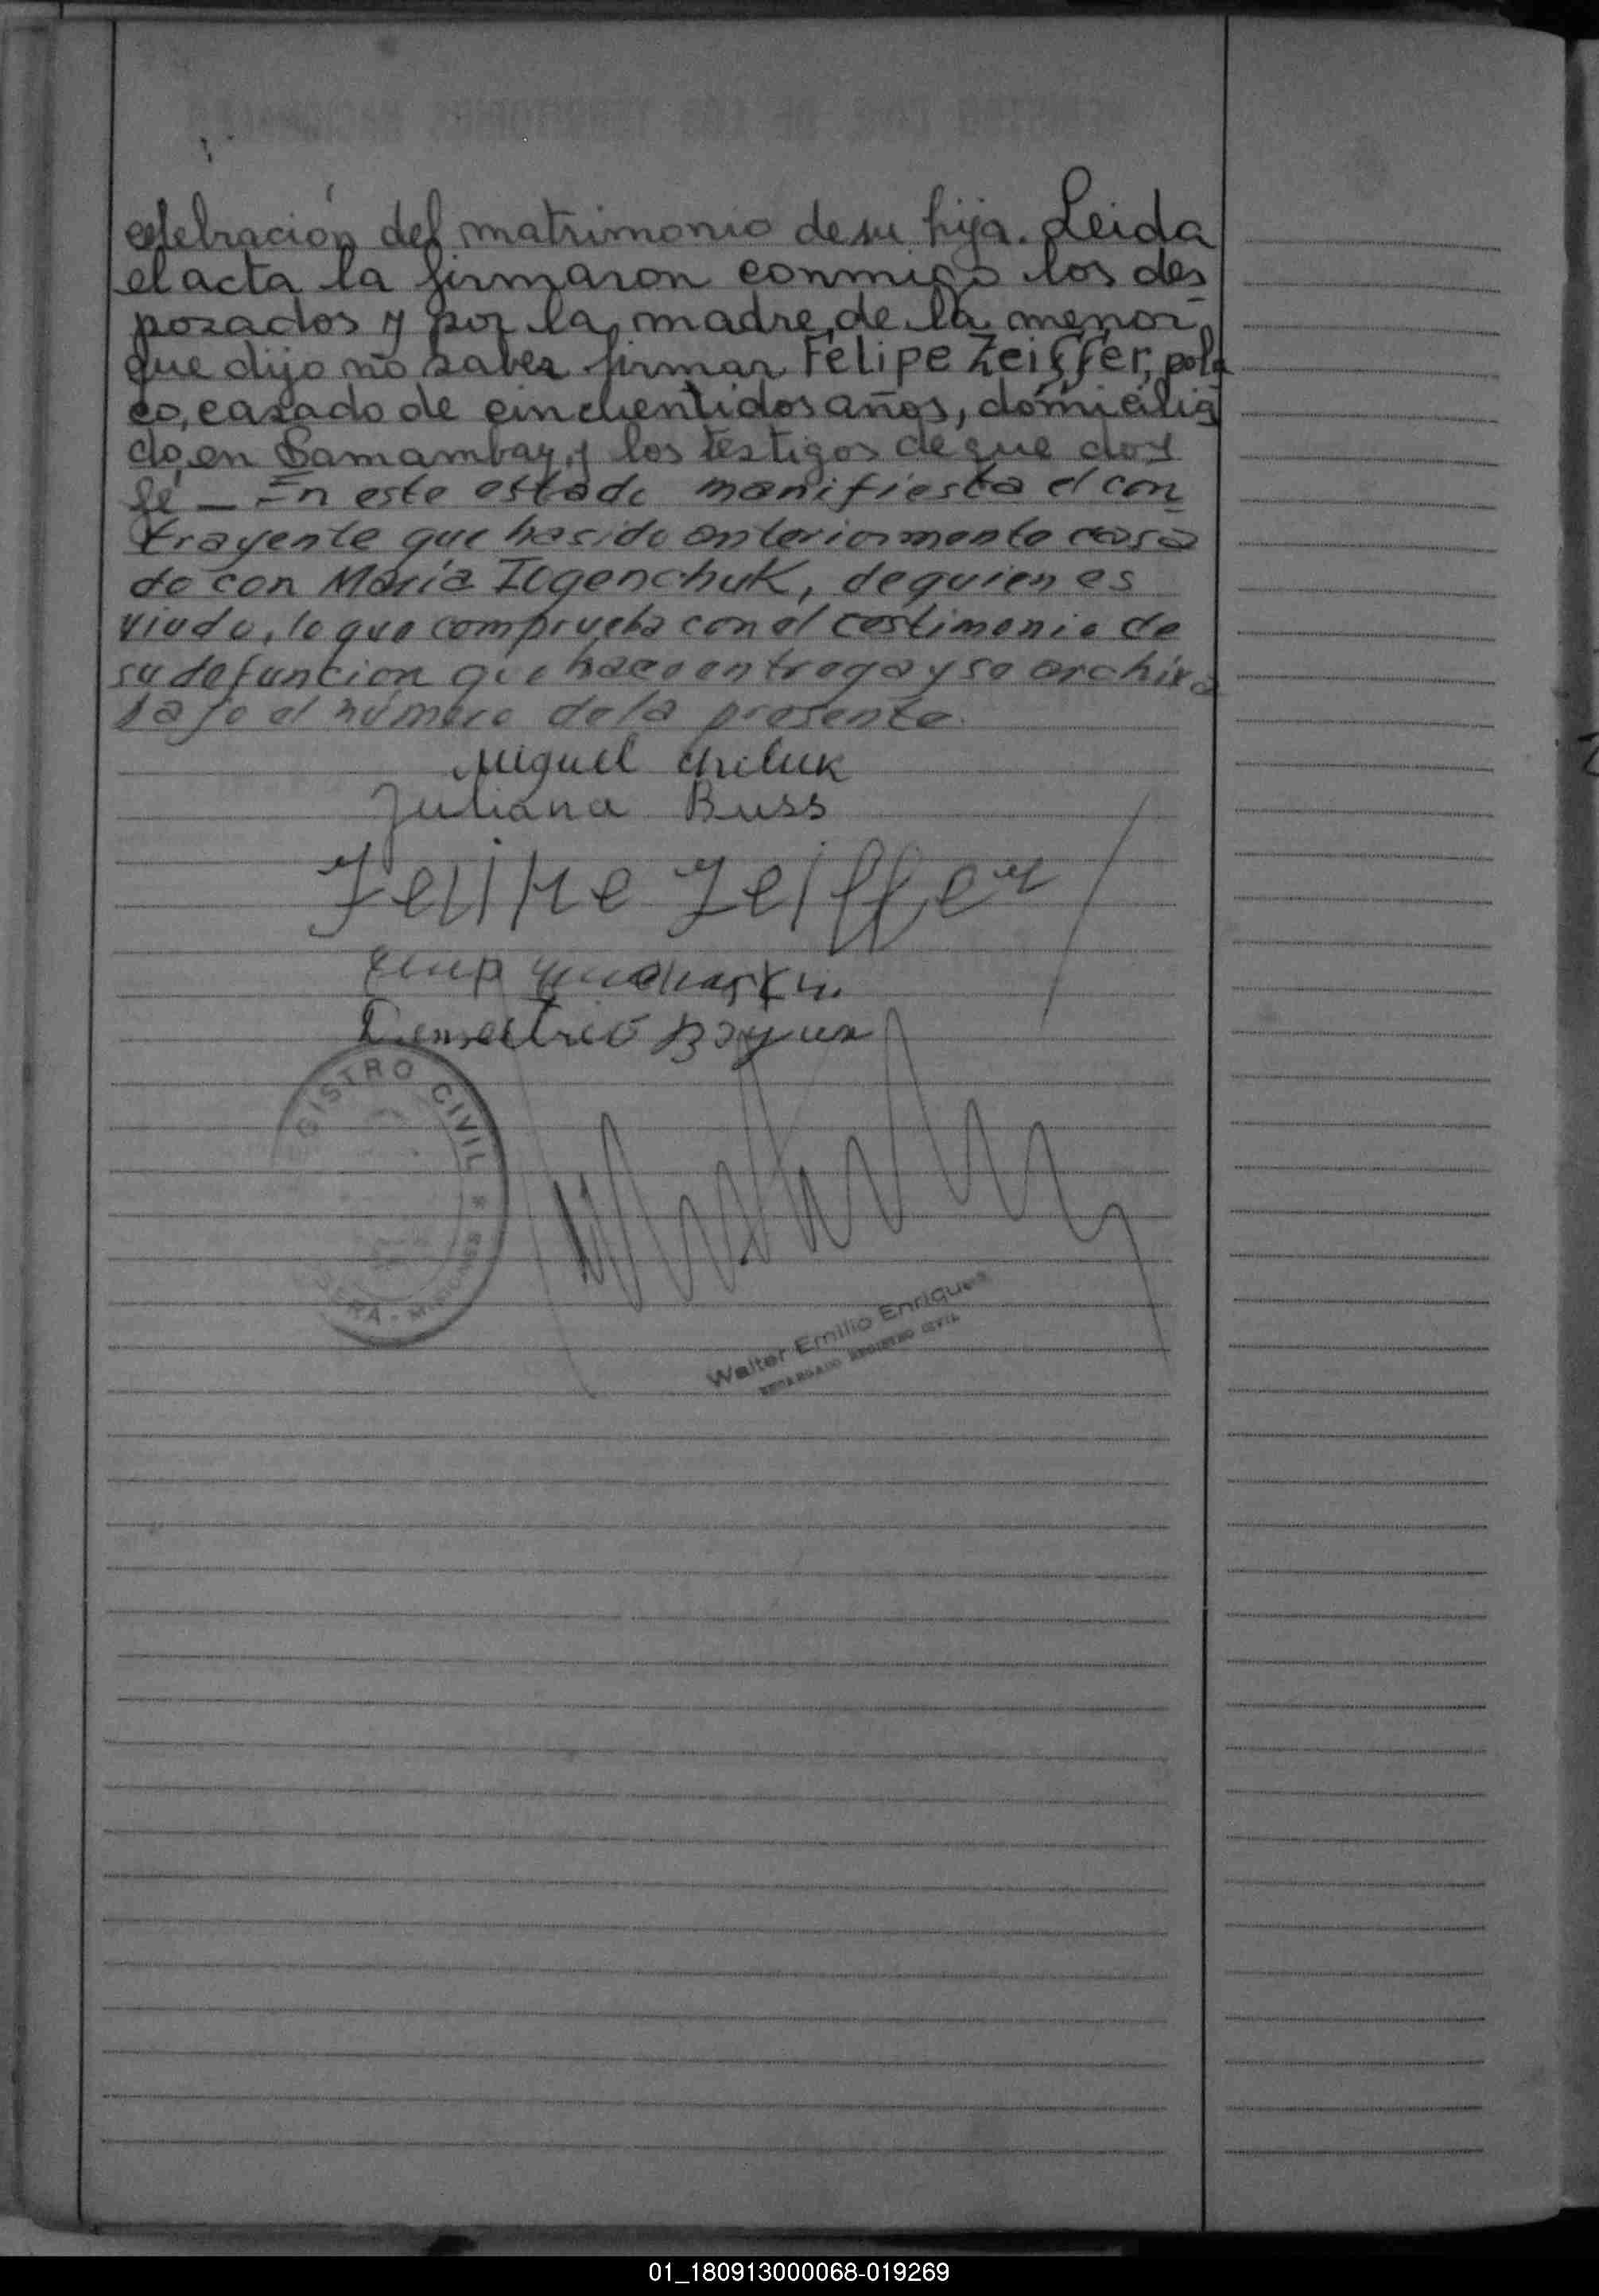 celebración del matrimonio de su hija. Leida
el acta la firmaron conmigo los des
pozados y por la madre de la menor
que dijo no saber firmar Felipe Zeiffer, pola
co, cazado de cincuentidos años, domicilia
do, en Samambay, y los testigos de que doy
fé — En este estado manifiesta el con
trayente que ha sido anteriormente casa
do con María Ilgenchuk, de quien es
viudo, lo que comprueba con el testimonio de
su defuncion que hace entrega y se archiva
bajo el número de la presente.
Miguel Chiluk
Juliana Buss
Felipe Zeiffer
Demetrio
GISTRO CIVIL *
ERA - MISIONES
Walter Emilio Enrique
ENCARGADO REGISTRO CIVIL
01_180913000068-019269